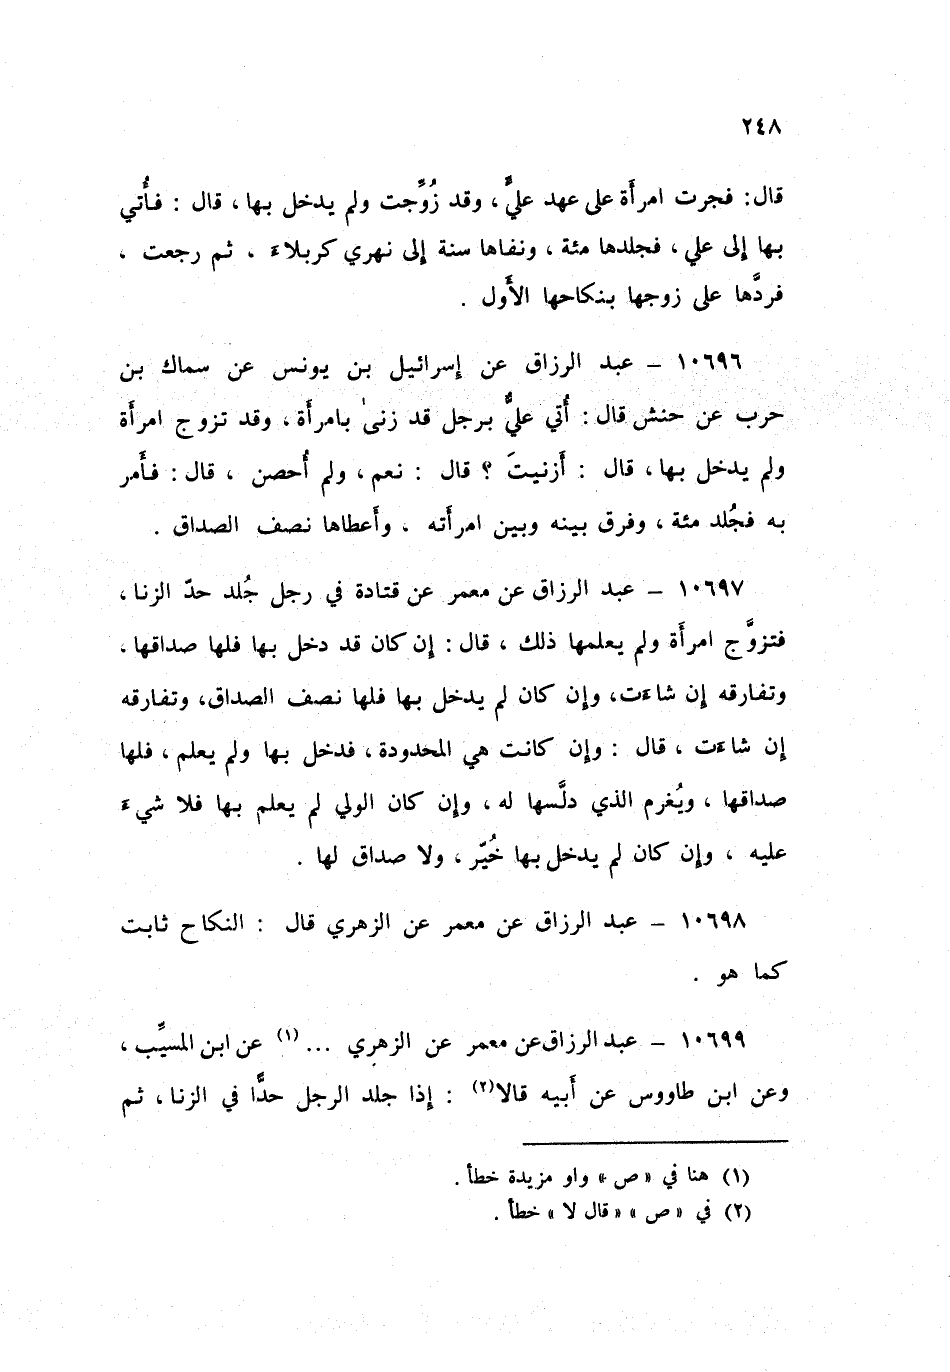 ٢٤٨
قال: فجرت امرأة على عهد عليٍّ، وقد زُوِّجت ولم يدخل بها، قال : فأُتي
بها إلى علي ، فجلدها مئة ، ونفاها سنة إلى نهري كربلاء ، ثم رجعت ،
فردَّها على زوجها بنكاحها الأَول .
١٠٦٩٦ – عبد الرزاق عن إسرائيل بن يونس عن سماك بن
حرب عن حنش قال : أُتي عليٌّ برجل قد زنىٰ بامرأَة ، وقد تزوج امرأَة
ولم يدخل بها، قال : أَزنيتَ ؟ قال : نعم ، ولم أُحصن ، قال : فأَمر
به فجُلد مئة ، وفرق بينه وبين امرأَته ، وأَعطاها نصف الصداق .
١٠٦٩٧ – عبد الرزاق عن معمر عن قتادة في رجل جُلد حدّ الزنا ،
فتزوَّج امرأَة ولم يعلمها ذلك ، قال : إن كان قد دخل بها فلها صداقها ،
وتفارقه إن شاءت، وإن كان لم يدخل بها فلها نصف الصداق، وتفارقه
إن شاءت ، قال : وإن كانت هي المحدودة ، فدخل بها ولم يعلم ، فلها
صداقها ، ويُغرم الذي دلَّسها له ، وإن كان الولي لم يعلم بها فلا شيء
عليه ، وإن كان لم يدخل بها خُيّر ، ولا صداق لها .
١٠٦٩٨ – عبد الرزاق عن معمر عن الزهري قال : النكاح ثابت
كما هو .
١٠٦٩٩ – عبد الرزاق عن معمر عن الزهري ... (١) عن ابن المسيِّب ،
وعن ابن طاووس عن أَبيه قالا(٢) : إذا جلد الرجل حدًّا في الزنا ، ثم
(١) هنا في «ص» واو مزيدة خطأ .
(٢) في «ص» «قال لا» خطأ .